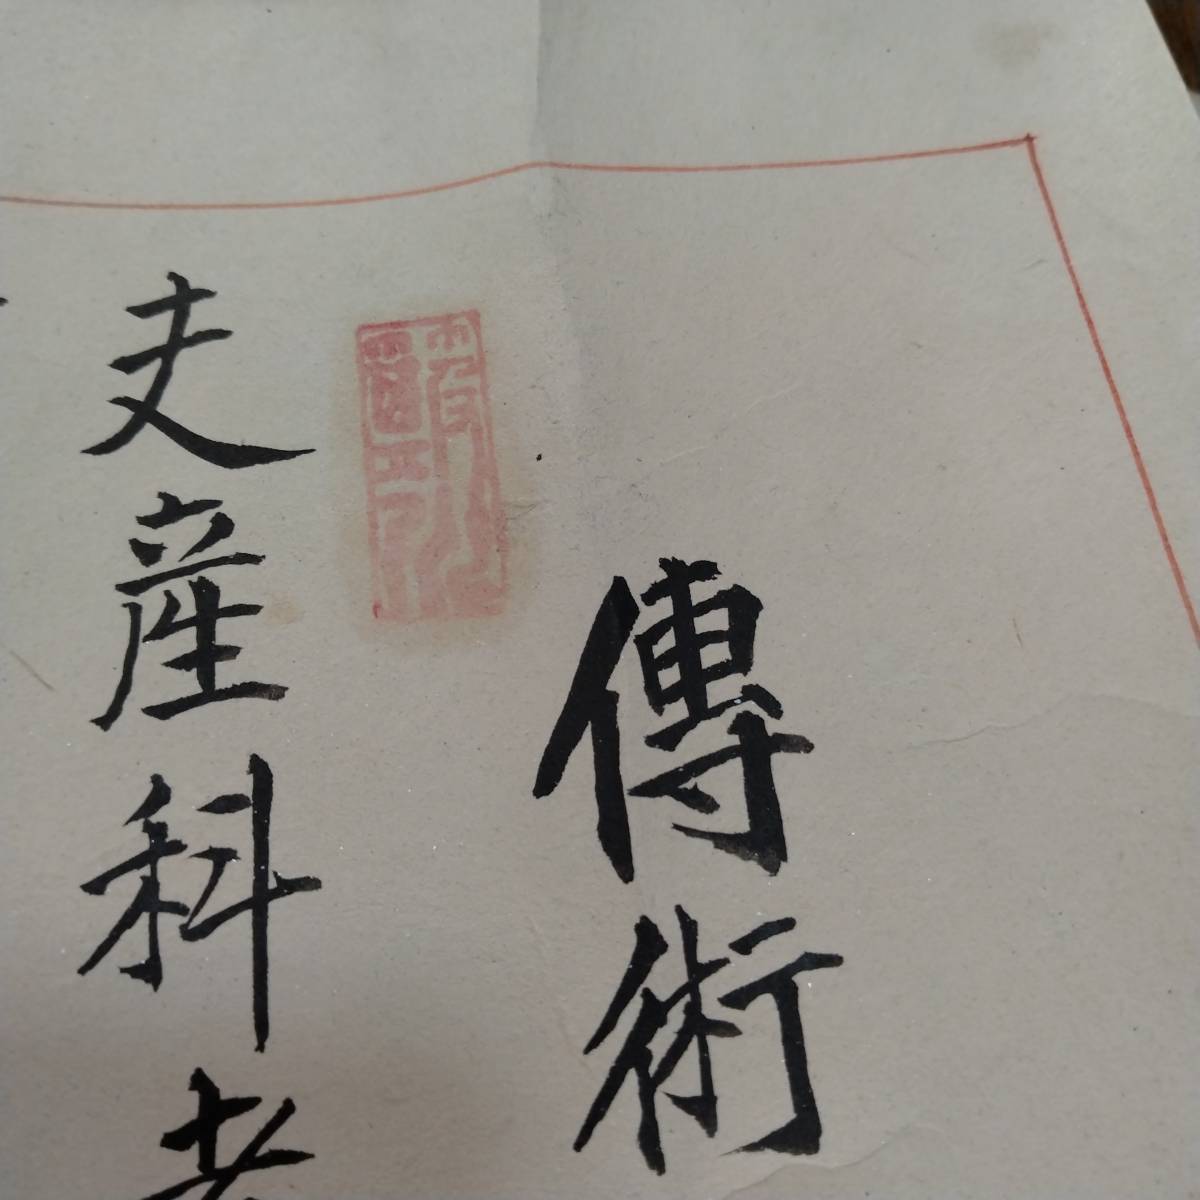 傳術
夫産科者